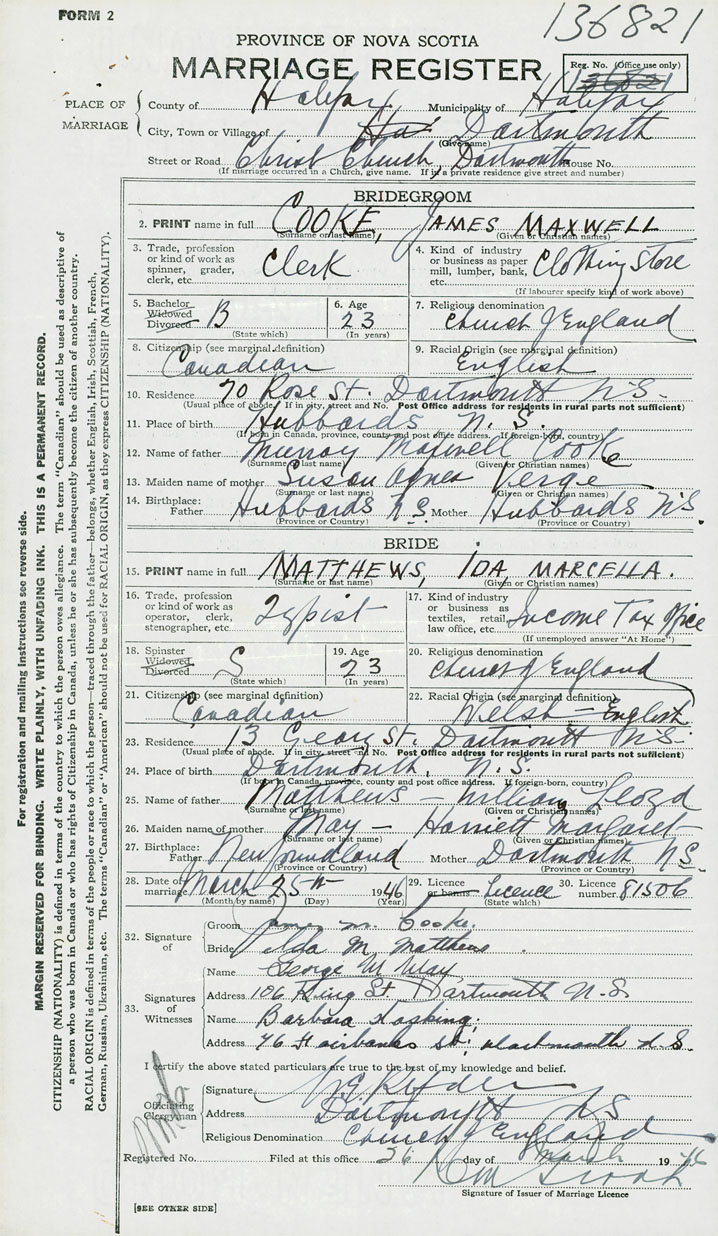 FORM 2
136821
PROVINCE OF NOVA SCOTIA
MARRIAGE REGISTER
Reg. No. (Office use only)
136821
PLACE OF MARRIAGE
County of Halifax Municipality of Halifax
City, Town or Village of Dartmouth
(Give name)
Street or Road Christ Church, Dartmouth House No.
(If marriage occurred in a Church, give name. If in a private residence give street and number)
BRIDEGROOM
2. PRINT name in full COOKE, JAMES MAXWELL
(Surname or last name) (Given or Christian names)
3. Trade, profession or kind of work as spinner, grader, clerk, etc. Clerk
4. Kind of industry or business as paper mill, lumber, bank, etc. Clothing Store
(If labourer specify kind of work above)
5. Bachelor Widowed Divorced B
(State which)
6. Age 23
(In years)
7. Religious denomination Church of England
8. Citizenship (see marginal definition) Canadian
9. Racial Origin (see marginal definition) English
10. Residence 70 Rose St. Dartmouth N.S.
(Usual place of abode. If in city, street and No. Post Office address for residents in rural parts not sufficient)
11. Place of birth Hubbards N.S.
(If born in Canada, province, county and post office address. If foreign-born, country)
12. Name of father Murray Maxwell Cooke
(Surname or last name) (Given or Christian names)
13. Maiden name of mother Susan Agnes Verge
(Surname or last name) (Given or Christian names)
14. Birthplace: Father Hubbards N.S. Mother Hubbards N.S.
(Province or Country) (Province or Country)
BRIDE
15. PRINT name in full MATTHEWS, IDA, MARCELLA.
(Surname or last name) (Given or Christian names)
16. Trade, profession or kind of work as operator, clerk, stenographer, etc. Typist
17. Kind of industry or business as textiles, retail, law office, etc. Income Tax Office
(If unemployed answer "At Home")
18. Spinster Widowed Divorced S
(State which)
19. Age 23
(In years)
20. Religious denomination Church of England
21. Citizenship (see marginal definition) Canadian
22. Racial Origin (see marginal definition) Welsh - English
23. Residence 13 Geary St. Dartmouth N.S.
(Usual place of abode. If in city, street and No. Post Office address for residents in rural parts not sufficient)
24. Place of birth Dartmouth, N.S.
(If born in Canada, province, county and post office address. If foreign-born, country)
25. Name of father Matthews - William Lloyd
(Surname or last name) (Given or Christian names)
26. Maiden name of mother May - Harriett Margaret
(Surname or last name) (Given or Christian names)
27. Birthplace: Father Newfoundland Mother Dartmouth N.S.
(Province or Country) (Province or Country)
28. Date of marriage March 25th 1946
(Month by name) (Day) (Year)
29. Licence or banns Licence
(State which)
30. Licence number 81506
32. Signature of
Groom James M. Cooke
Bride Ida M. Matthews
33. Signatures of Witnesses
Name George W.
Address 106 King St. Dartmouth N.S.
Name Barbara Hosking
Address 46 Fairbanks St. Dartmouth N.S.
I certify the above stated particulars are true to the best of my knowledge and belief.
Officiating Clergyman
Signature
Address Dartmouth N S
Religious Denomination Church of England
Registered No. Filed at this office 26 day of March 1946
Signature of Issuer of Marriage Licence
[SEE OTHER SIDE]
For registration and mailing instructions see reverse side.
MARGIN RESERVED FOR BINDING. WRITE PLAINLY, WITH UNFADING INK. THIS IS A PERMANENT RECORD.
CITIZENSHIP (NATIONALITY) is defined in terms of the country to which the person owes allegiance. The term "Canadian" should be used as descriptive of
a person who was born in Canada or who has rights of Citizenship in Canada, unless he or she has subsequently become the citizen of another country.
RACIAL ORIGIN is defined in terms of the people or race to which the person—traced through the father—belongs, whether English, Irish, Scottish, French,
German, Russian, Ukrainian, etc. The terms "Canadian" or "American" should not be used for RACIAL ORIGIN, as they express CITIZENSHIP (NATIONALITY).